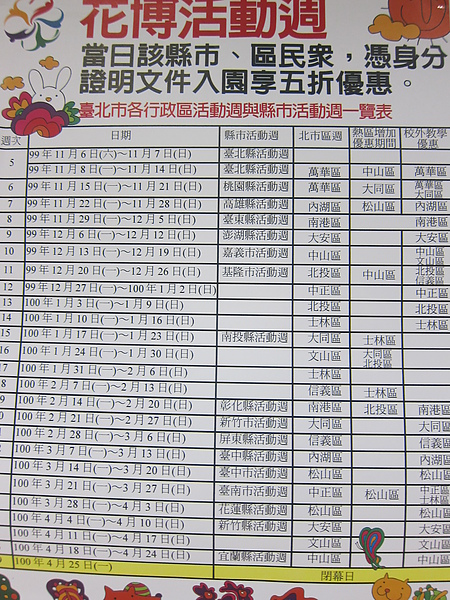 花博活動週
當日該縣市、區民眾，憑身分
證明文件入園享五折優惠。
臺北市各行政區活動週與縣市活動週一覽表
週次 日期 縣市活動週 北市區週 熱區增加優惠期間 校外教學優惠
5 99年11月6日(六)～11月7日(日) 臺北縣活動週
99年11月8日(一)～11月14日(日) 臺北縣活動週 萬華區 中山區 萬華區
6 99年11月15日(一)～11月21日(日) 桃園縣活動週 萬華區 大同區 萬華區 大同區
7 99年11月22日(一)～11月28日(日) 高雄縣活動週 內湖區 松山區 內湖區
8 99年11月29日(一)～12月5日(日) 臺東縣活動週 南港區 南港區
9 99年12月6日(一)～12月12日(日) 澎湖縣活動週 大安區 大安區
10 99年12月13日(一)～12月19日(日) 嘉義市活動週 中山區 中山區 文山區
11 99年12月20日(一)～12月26日(日) 基隆市活動週 北投區 中山區 北投區 信義區
12 99年12月27日(一)～100年1月2日(日) 中正區 中正區
13 100年1月3日(一)～1月9日(日) 北投區 北投區
14 100年1月10日(一)～1月16日(日) 士林區 士林區
15 100年1月17日(一)～1月23日(日) 南投縣活動週 大同區 士林區
16 100年1月24日(一)～1月30日(日) 文山區 大同區 北投區
17 100年1月31日(一)～2月6日(日) 士林區
8 100年2月7日(一)～2月13日(日) 信義區 士林區
9 100年2月14日(一)～2月20日(日) 彰化縣活動週 南港區 北投區 南港區
0 100年2月21日(一)～2月27日(日) 新竹市活動週 大同區 大同區
1 100年2月28日(一)～3月6日(日) 屏東縣活動週 信義區 信義區
2 100年3月7日(一)～3月13日(日) 臺中縣活動週 內湖區 內湖區
100年3月14日(一)～3月20日(日) 臺中市活動週 松山區 松山區
100年3月21日(一)～3月27日(日) 臺南市活動週 中正區 松山區 中正區 士林區
100年3月28日(一)～4月3日(日) 花蓮縣活動週 松山區 松山區
100年4月4日(一)～4月10日(日) 新竹縣活動週 大安區 大安區
100年4月11日(一)～4月17日(日) 文山區 文山區
100年4月18日(一)～4月24日(日) 宜蘭縣活動週 中山區 中山區
100年4月25日(一) 閉幕日